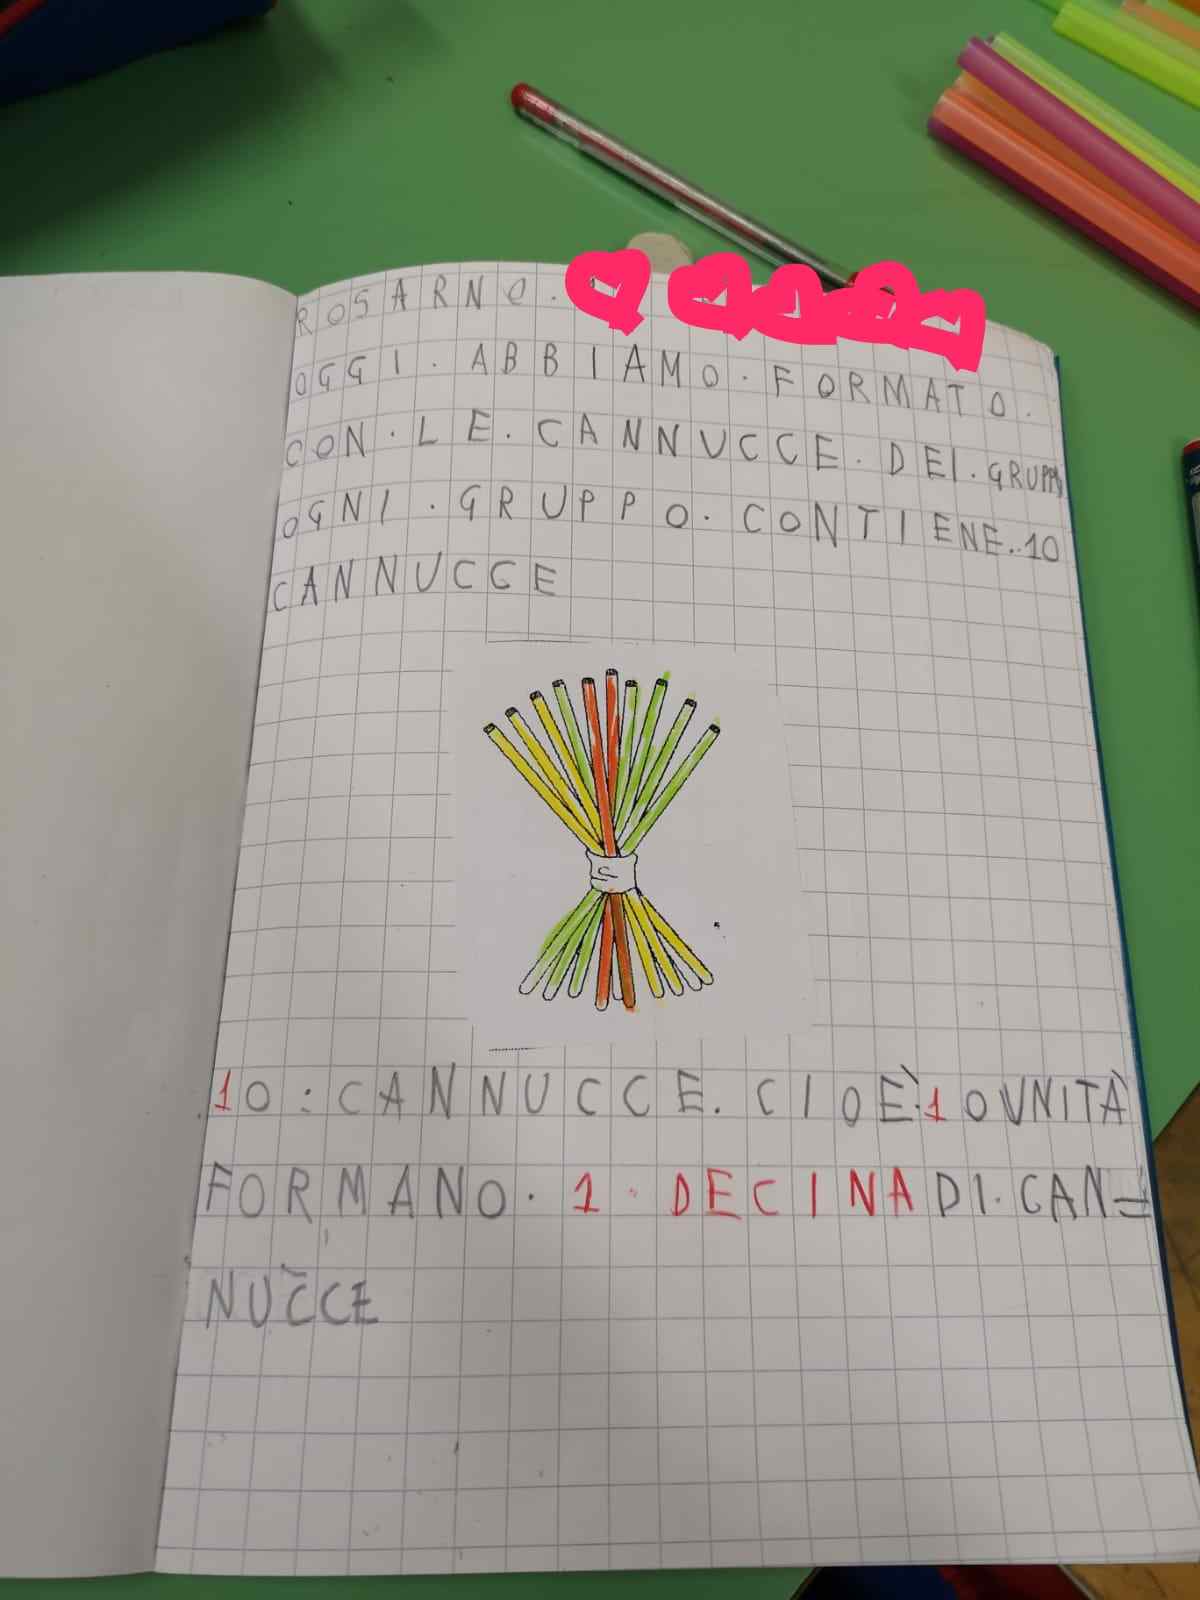 ROSARNO.
OGGI. ABBIAMO. FORMATO.
CON. LE. CANNUCCE. DEI. GRUPPI
OGNI. GRUPPO. CONTIENE. 10
CANNUCCE
10: CANNUCCE. CIOÈ. 10 UNITÀ
FORMANO. 1. DECINA DI. CAN=
NUCCE